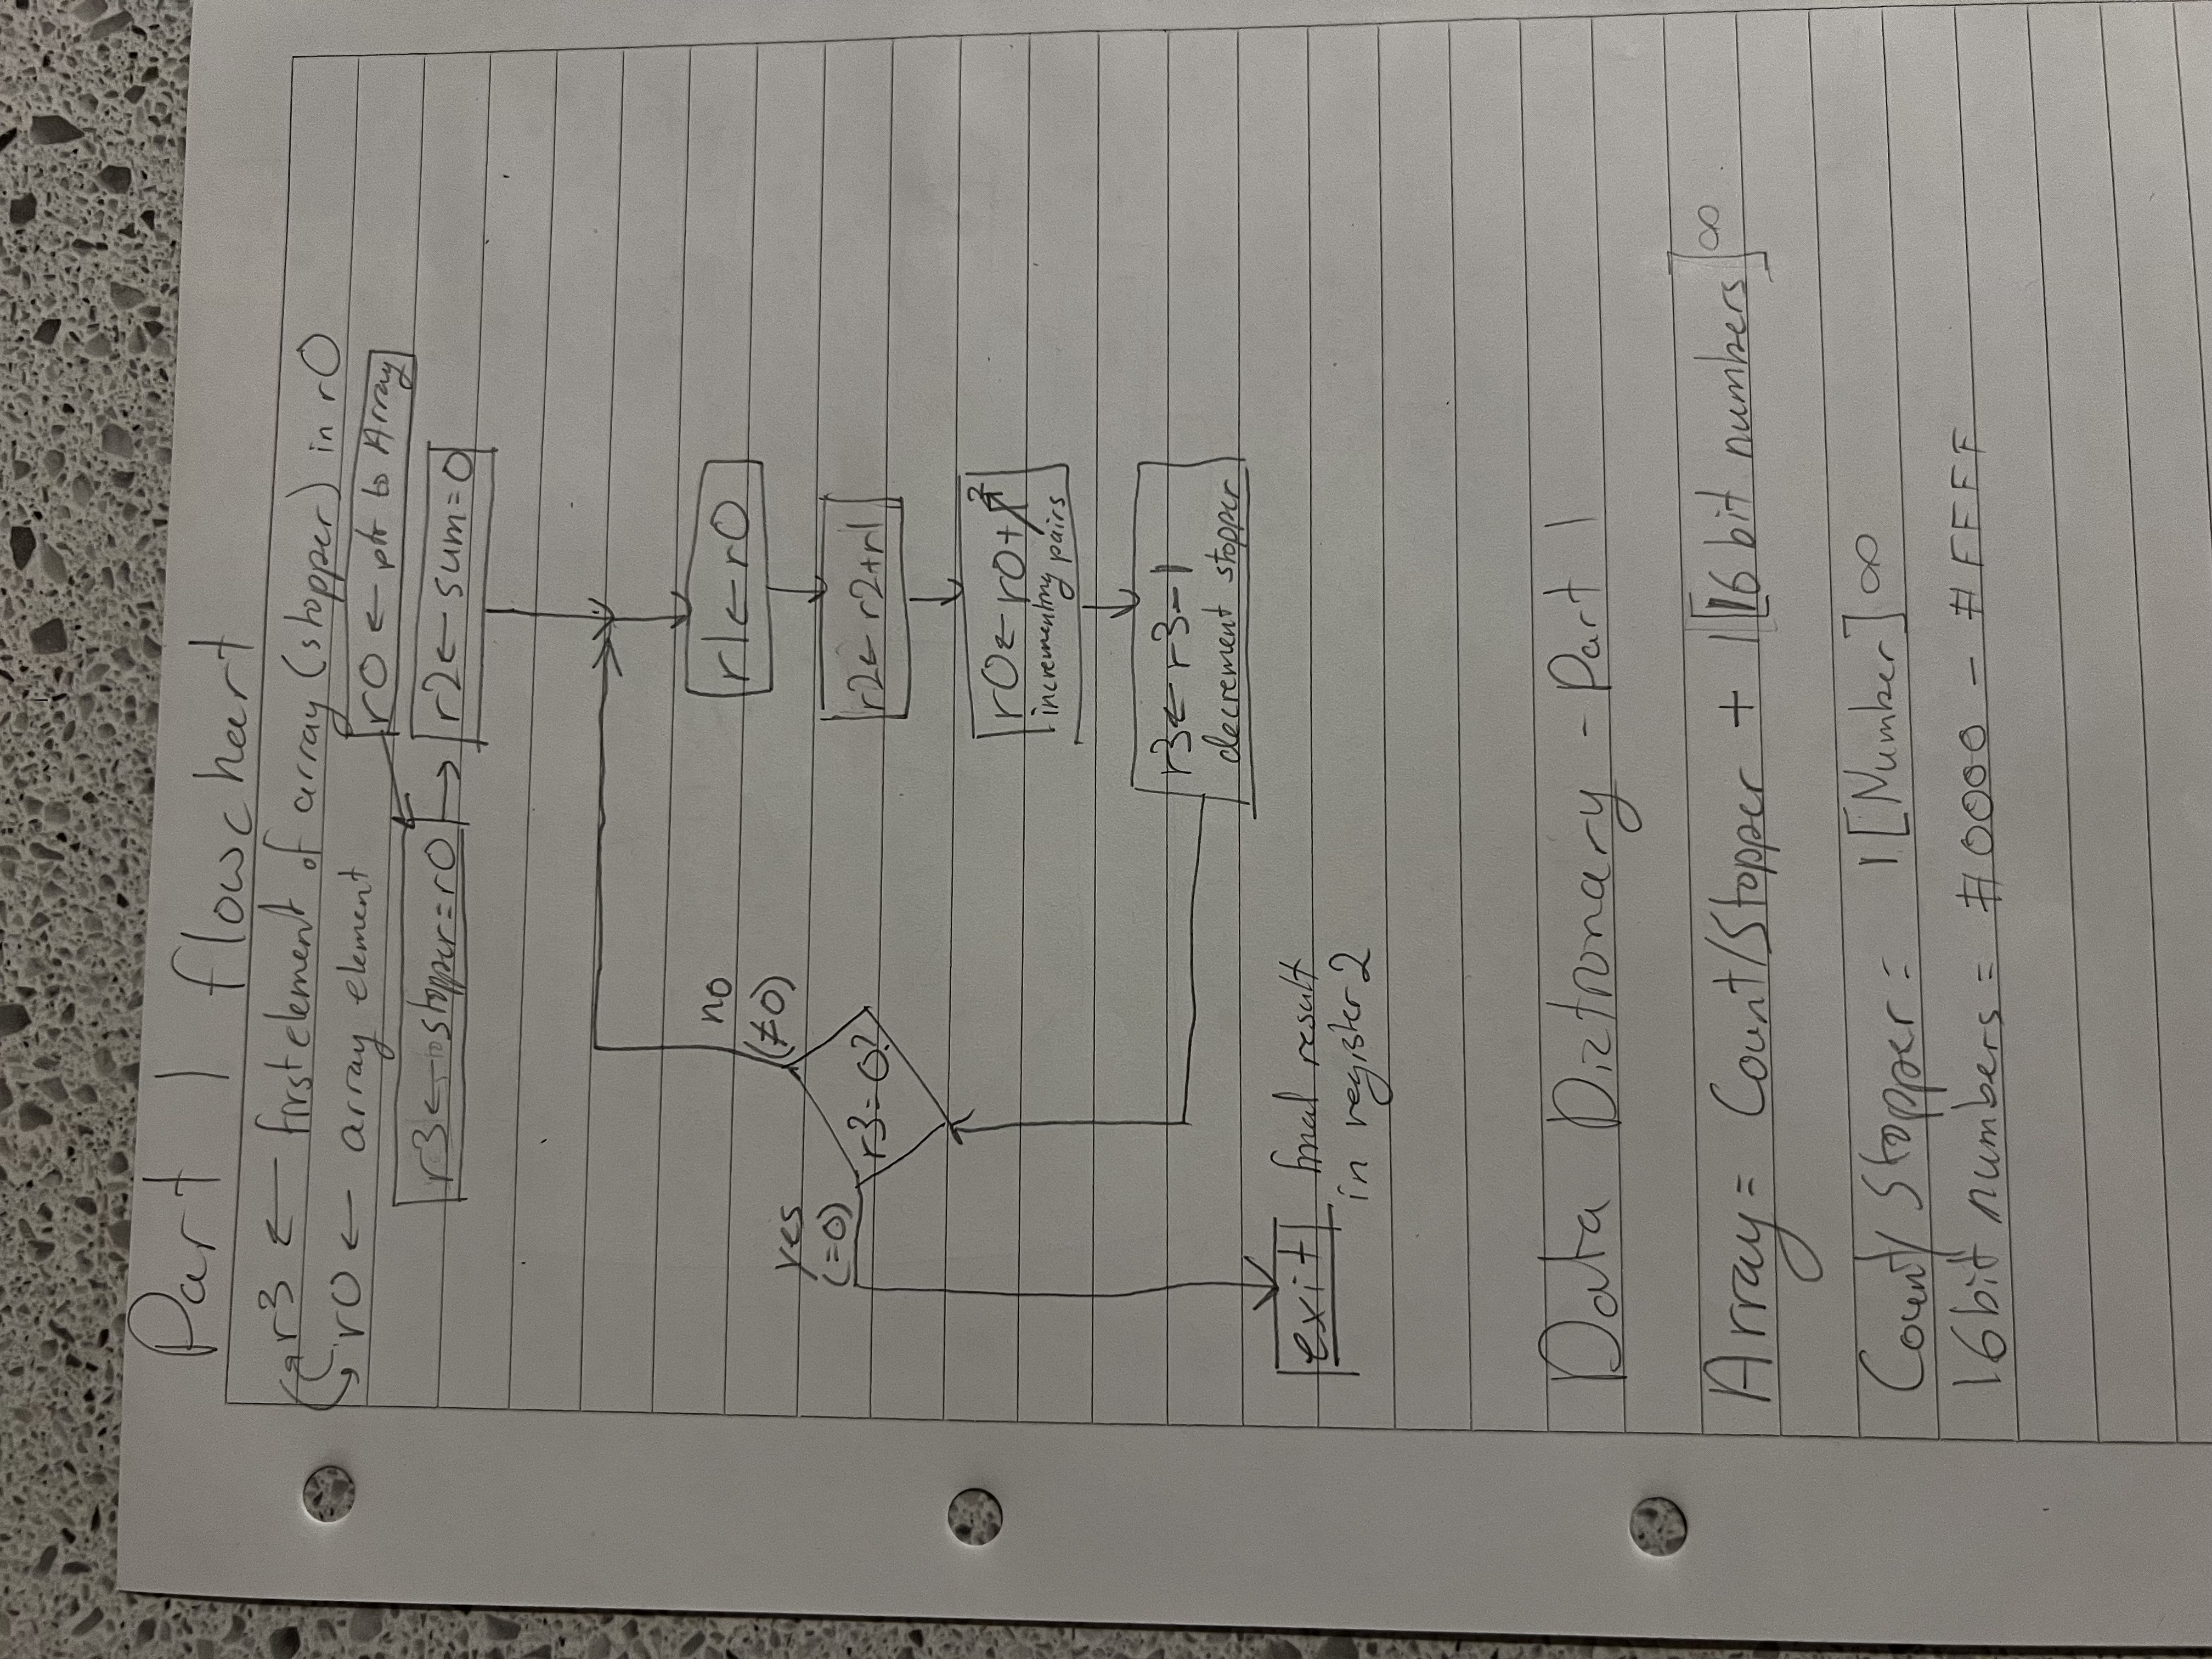 Part 1 flowchart
r3 ← first element of array (stopper) in r0
r0 ← array element
r0 ← ptr to Array
r3 ← stopper = r0
r2 ← sum = 0
r1 ← r0
r2 ← r2 + r1
r0 ← r0 + 2
incrementing pairs
r3 ← r3 - 1
decrement stopper
r3 = 0?
no
(≠0)
yes
(=0)
exit
final result
in register 2
Data Dictionary - Part 1
Array = Count/Stopper + 1[16 bit numbers]∞
Count/Stopper = 1[Number]∞
16 bit numbers = #0000 - #FFFF